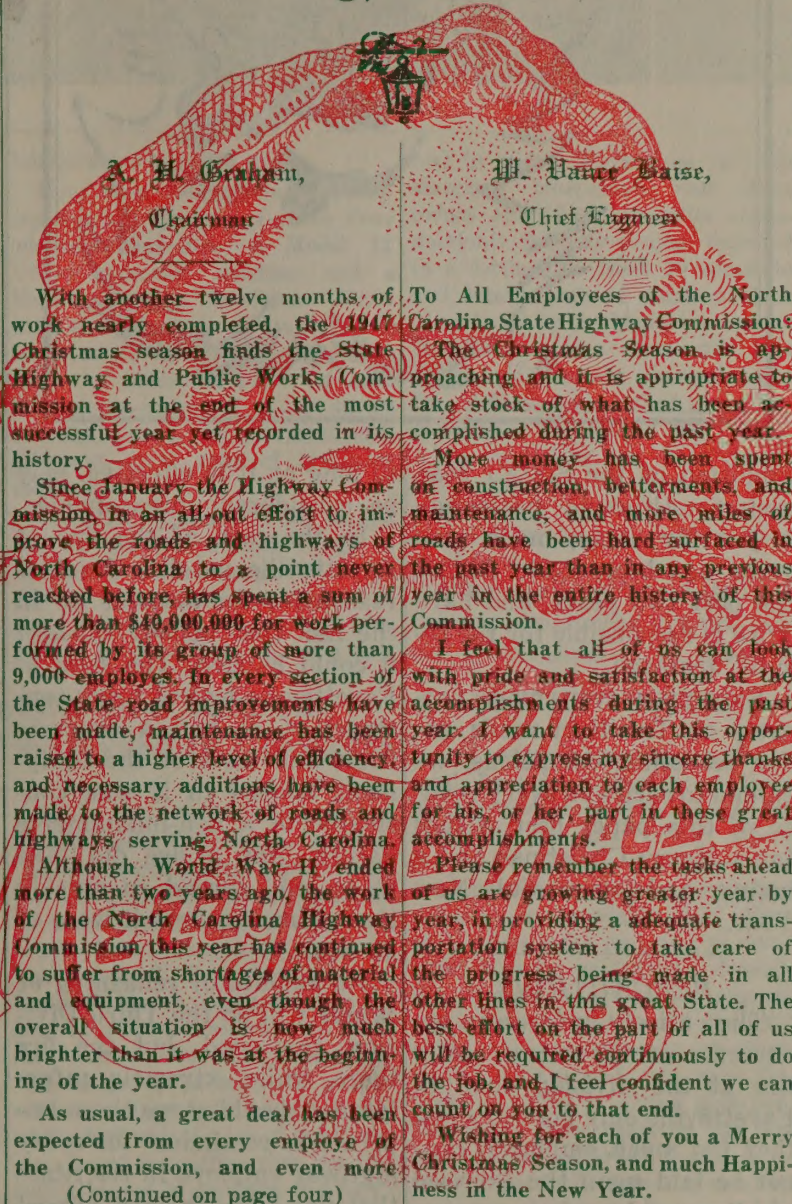 A. H. Graham,
Chairman
With another twelve months of
work nearly completed, the 1947
Christmas season finds the State
Highway and Public Works Com-
mission at the end of the most
successful year yet recorded in its
history.
Since January the Highway Com-
mission, in an all-out effort to im-
prove the roads and highways of
North Carolina to a point never
reached before, has spent a sum of
more than $40,000,000 for work per-
formed by its group of more than
9,000 employes. In every section of
the State road improvements have
been made, maintenance has been
raised to a higher level of efficiency,
and necessary additions have been
made to the network of roads and
highways serving North Carolina.
Although World War II ended
more than two years ago, the work
of the North Carolina Highway
Commission this year has continued
to suffer from shortages of material
and equipment, even though the
overall situation is now much
brighter than it was at the beginn-
ing of the year.
As usual, a great deal has been
expected from every employe of
the Commission, and even more
(Continued on page four)
W. Vance Baise,
Chief Engineer
To All Employees of the North
Carolina State Highway Commission:
The Christmas Season is ap-
proaching and it is appropriate to
take stock of what has been ac-
complished during the past year.
More money has been spent
on construction, betterments, and
maintenance, and more miles of
roads have been hard surfaced in
the past year than in any previous
year in the entire history of this
Commission.
I feel that all of us can look
with pride and satisfaction at the
accomplishments during the past
year. I want to take this oppor-
tunity to express my sincere thanks
and appreciation to each employee
for his, or her, part in these great
accomplishments.
Please remember the tasks ahead
of us are growing greater year by
year, in providing a adequate trans-
portation system to take care of
the progress being made in all
other lines in this great State. The
best effort on the part of all of us
will be required continuously to do
the job, and I feel confident we can
count on you to that end.
Wishing for each of you a Merry
Christmas Season, and much Happi-
ness in the New Year.
Merry Christm